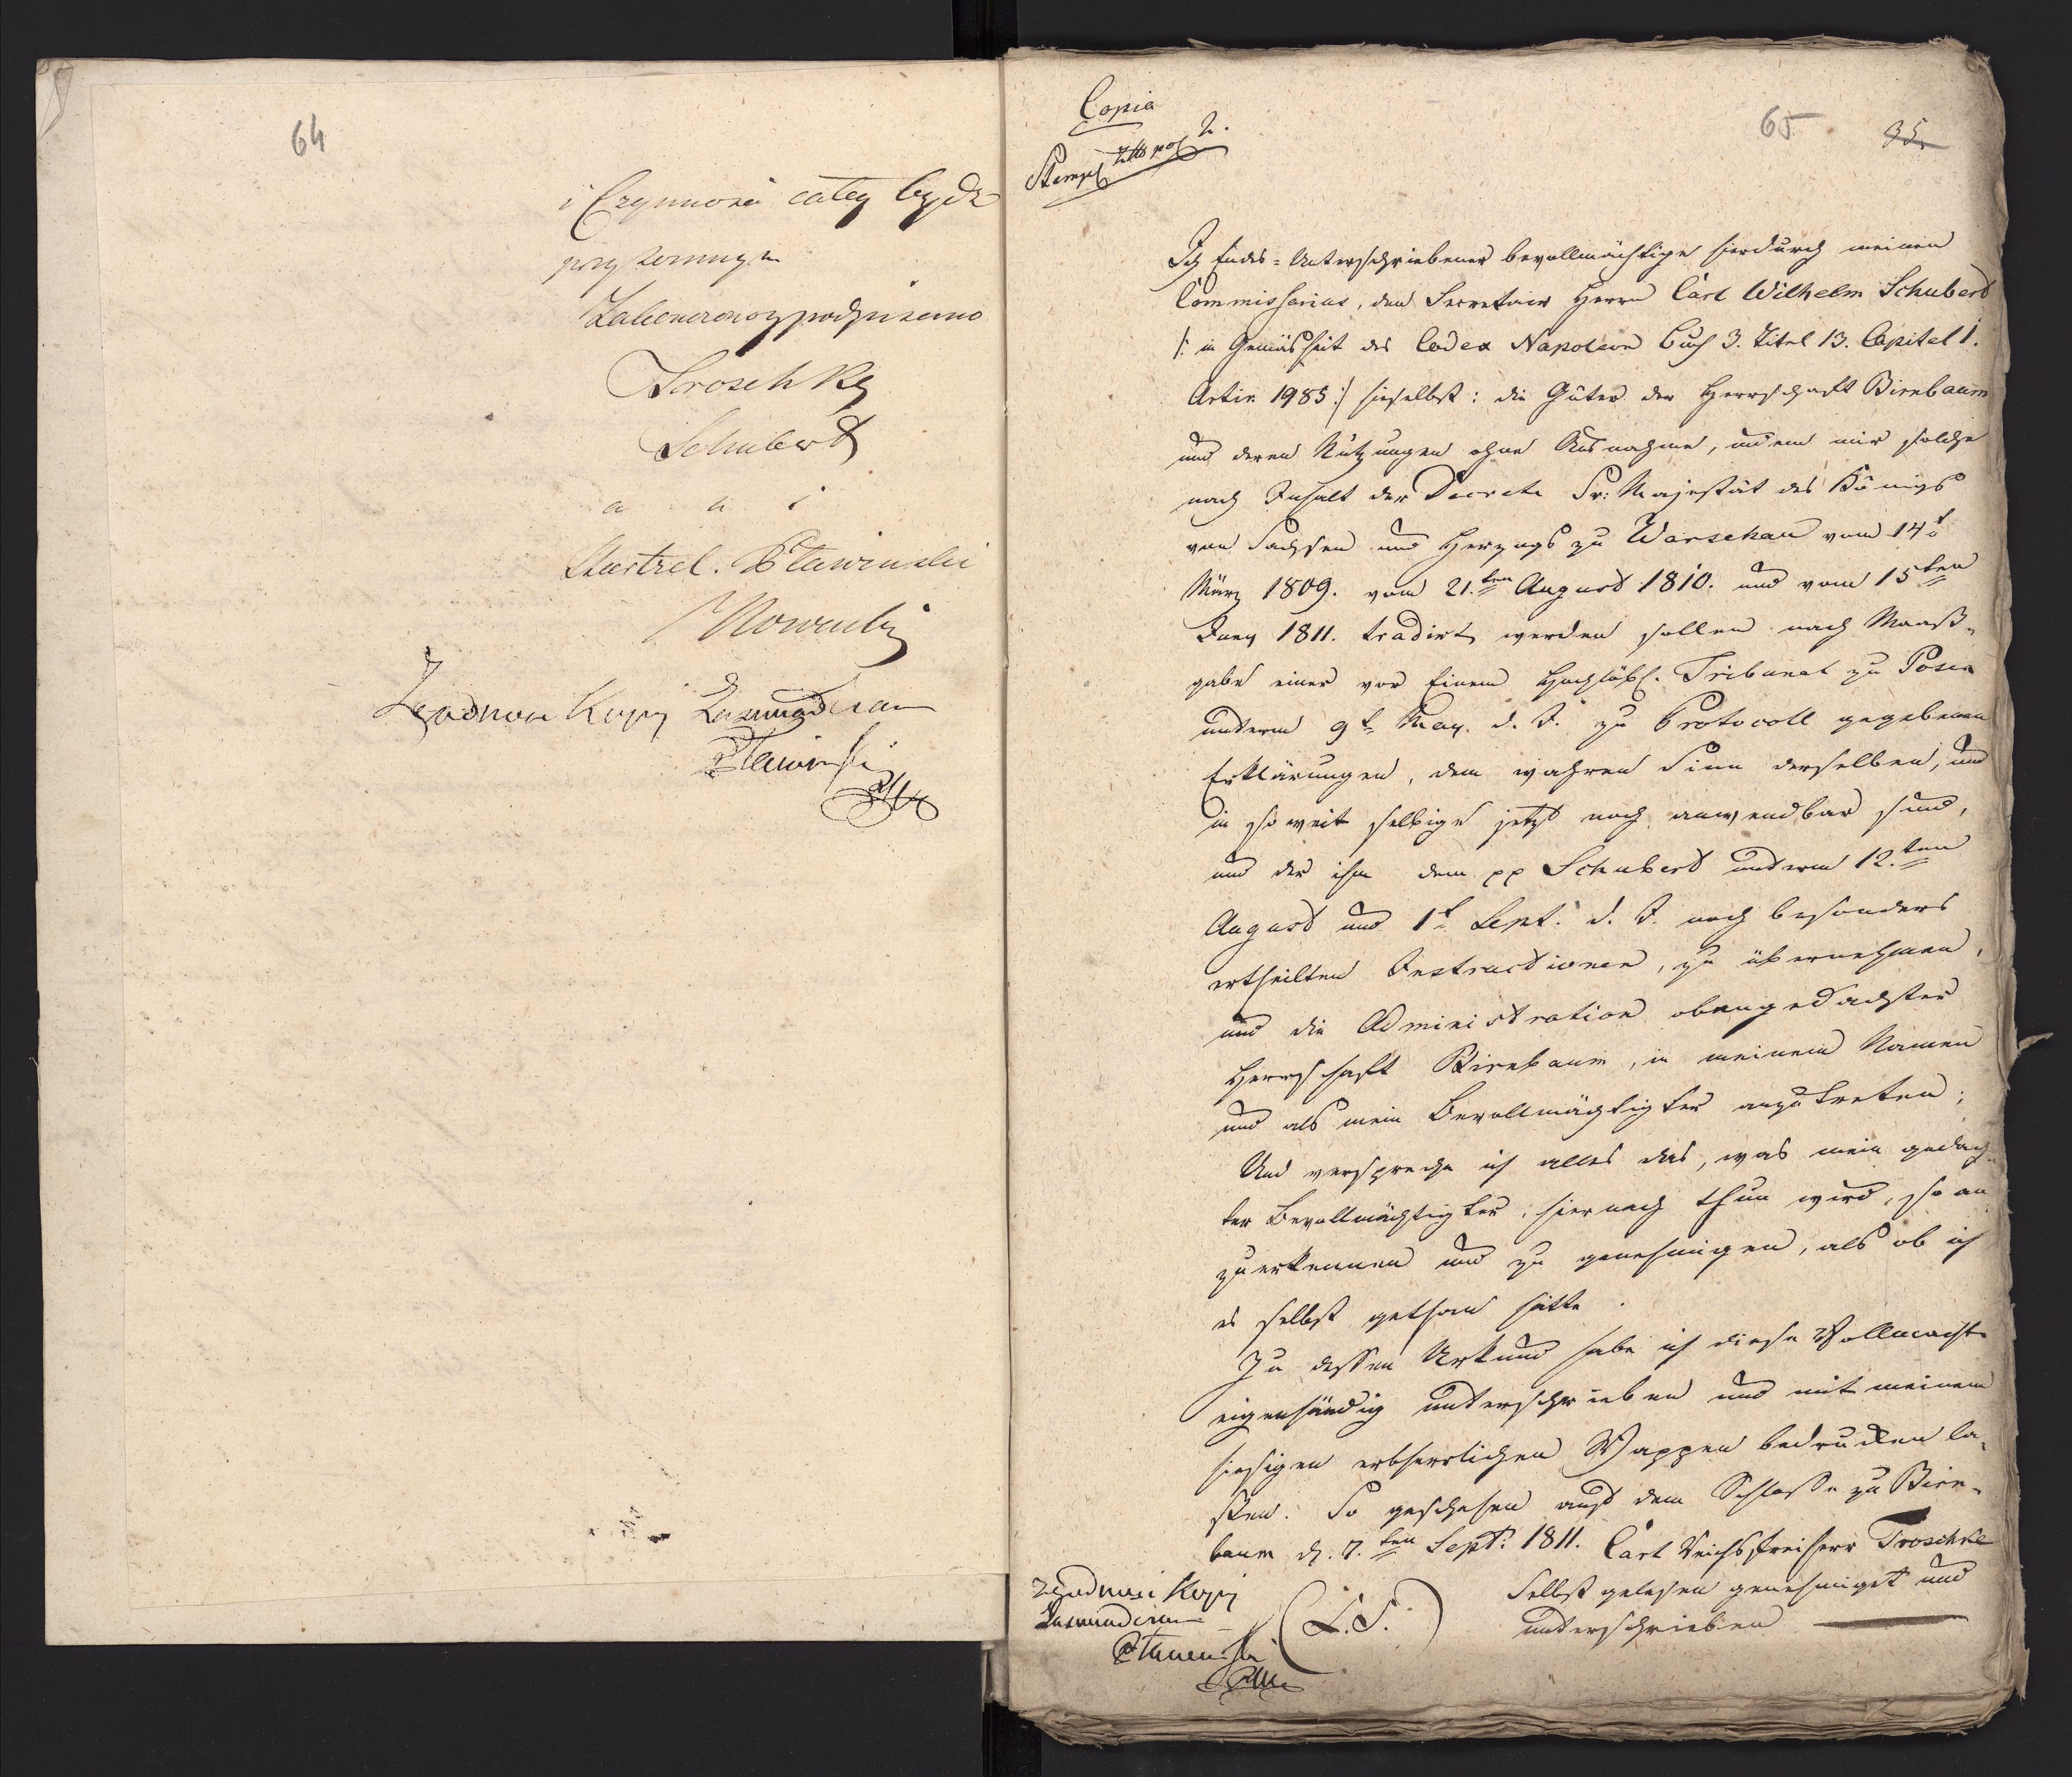 64
i Czynności całey będą
przytomnym
Zakończono y podpisano
Troschky
Schubert
a u i
Plawinski
Nowacki
Zgodność Kopii Zaswiadcza
Plawinski
Copia
Stempel Złt pol 2.
65
35.
Ich Endes-Unterschriebener bevollmächtige hierdurch meinen
Commissarius, den Secretair Herrn Carl Wilhelm Schubert
/: in Gemäsheit des Codex Napoleon Buch 3. Titel 13. Capitel 1.
Artic 1985 :/ hieselbst: die Güter der Herrschaft Birnbaum
und deren Nutzungen ohne Ausnahme, indem mir solche
nach Inhalt der Decrete Sr: Majestät des Königs
von Sachsen und Herzogs zu Warschau vom 14t
März 1809. vom 21.ten August 1810. und vom 15ten
Juny 1811. tradirt werden sollen nach Maaß-
gabe einer vor Einem Hochlöbl. Tribunal zu Posen
unterm 9t May. d. J. zu Protocoll gegebenen
Erklärungen, dem wahren Sinn derselben, und
in so weit selbige jetzt noch anwendbar sind,
und der ihm dem pp Schubert unterm 12.ten
August und 1t Sept: d. J. noch besonders
ertheilten Instructionen, zu übernehmen,
und die Administration obengedachter
Herrschaft Birnbaum, in meinem Namen
und als mein Bevollmächtigter anzutreten;
Und verspreche ich alles das, was mein gedach-
ter Bevollmächtigter, hiernach thun wird, so an
zuerkennen und zu genehmigen, als ob ich
es selbst gethan hätte.
Zu dessen Urkund habe ich diese Vollmacht
eigenhändig unterschrieben und mit meinem
hiesigen erbherrlichen Wappen bedrucken la-
ßen. So geschehen auf dem Schloße zu Birn-
baum d. 7.ten Sept: 1811. Carl Reichsfreiherr Troschke
Selbst gelesen genehmiget und
unterschrieben
(L.S.)
Zgodność Kopii
Zaswiadcza
Plawinski